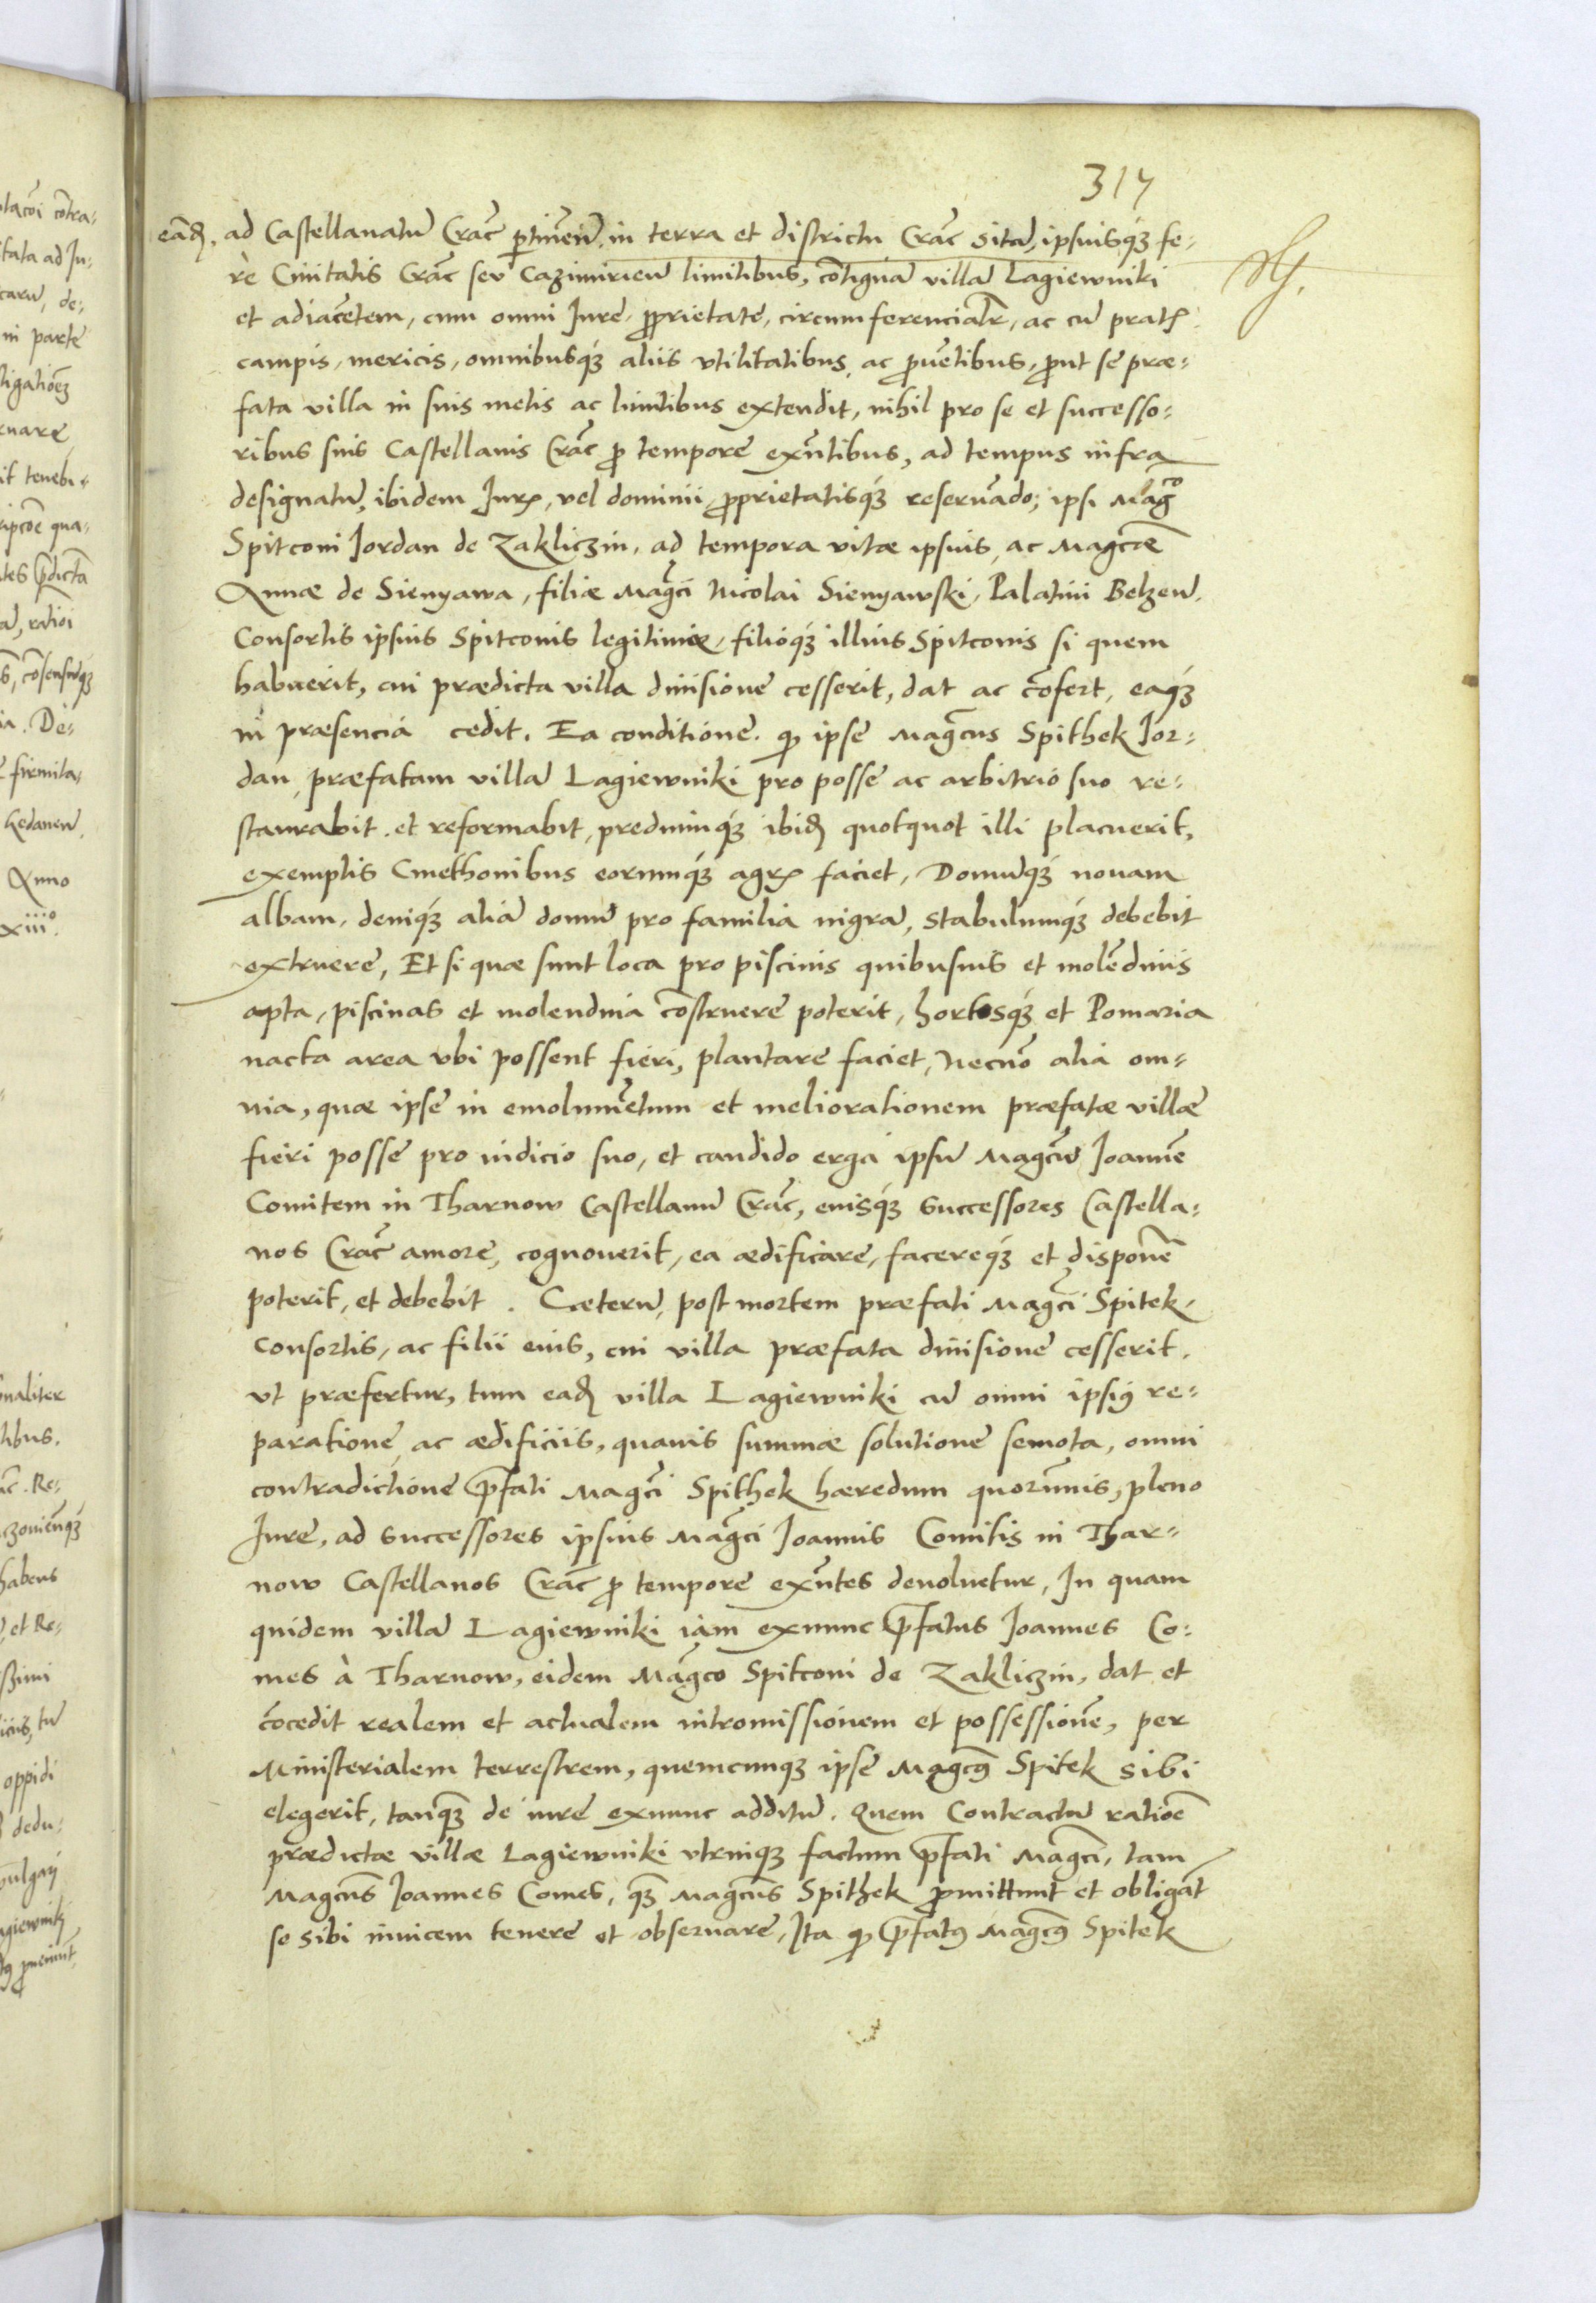 317
eãdȝ, ad Castellanatũ Crac̃ ptinẽñ, in terra et districtu Crac̃ sitã, ipsiusq́ȝ fe-
rè Ciuitatis Crac̃ seu Cazimirieñ limitibus, cõtiguã villã Lagiewniki
et adiacẽtem, cum omni Iure, pprietate, circumferencialr̃, ac cũ pratꝭ
campis, mericis, omnibusq́ȝ aliis vtilitatibus, ac puẽtibus, put se præ-
fata villa in suis metis ac limitibus extendit, nihil pro se et successo-
ribus suis Castellanis Crac̃ p tempore exñtibus, ad tempus infra
designatũ, ibidem Jurꝭ, vel dominii, pprietatisq́ȝ reseruãdo; ipsi Magco
Spitconi Iordan de Zakliczin, ad tempora vitæ ipsius, ac Magcæ
Annæ de Sienyawa, filiæ Magci Nicolai Sienyawski, Palatini Belzeñ.
Consortis ipsius Spitconis legitimæ, filioq́ȝ illius Spitconis si quem
habuerit, cui prædicta villa diuisione cesserit, dat ac cõfert, eaq́ȝ
in præsencia cedit. Ea conditione, qp ipse Magcus Spithek Ior-
dan, præfatam villã Lagiewniki pro posse ac arbitrio suo re-
staurabit, et reformabit, prediumq́ȝ ibidȝ quotquot illi placuerit,
exemptis Cmethonibus eorumq́ȝ agrꝭ faciet, Domũq́ȝ nouam
albam, deniq́ȝ aliã domũ pro familia nigrã, stabulumq́ȝ debebit
extruere, Et si quæ sunt loca pro piscinis quibusuis et molẽdinis
apta, piscinas et molendina cõstruere poterit, hortosq́ȝ et Pomaria
nacta area vbi possent fieri, plantare faciet, Necnõ alia om-
nia, quæ ipse in emolumẽtum et meliorationem præfatæ villæ
fieri posse pro iudicio suo, et candido erga ipsũ Magcũ Ioannẽ
Comitem in Tharnow Castellanũ Crac̃, eiusq́ȝ successores Castella-
nos Crac̃ amore, cognouerit, ea ædificare, facereq́ȝ et disponẽ
poterit, et debebit. Cæterũ, post mortem præfati Magci Spitek,
consortis, ac filii eius, cui villa præfata diuisione cesserit,
vt præfertur, tum eadȝ villa Lagiewniki cũ omni ipsiꝯ re-
paratione, ac ædificiis, quauis summæ solutione semota, omni
contradictione pfati Magci Spithek hæredum quorũuis, pleno
Jure, ad successores ipsius Magci Ioannis Comitis in Thar-
now Castellanos Crac̃ p tempore exñtes deuoluetur, In quam
quidem villã Lagiewniki iam exnunc pfatus Ioannes Co-
mes à Tharnow, eidem Magco Spitconi de Zakliczin, dat et
cõcedit realem et actualem intromissionem et possessionẽ, per
Ministerialem terrestrem, quemcunqȝ ipse Magcꝯ Spitek sibi
elegerit, tanqȝ de iure exnunc additũ. Quem Contractũ ratiõe
prædictæ villæ Lagiewniki vtrinqȝ factum pfati Magci, tam
Magcus Ioannes Comes, qȝ Magcus Spithek pmittunt et obligãt
se sibi inuicem tenere et obseruare, Ita qp pfatꝯ Magcꝯ Spitek